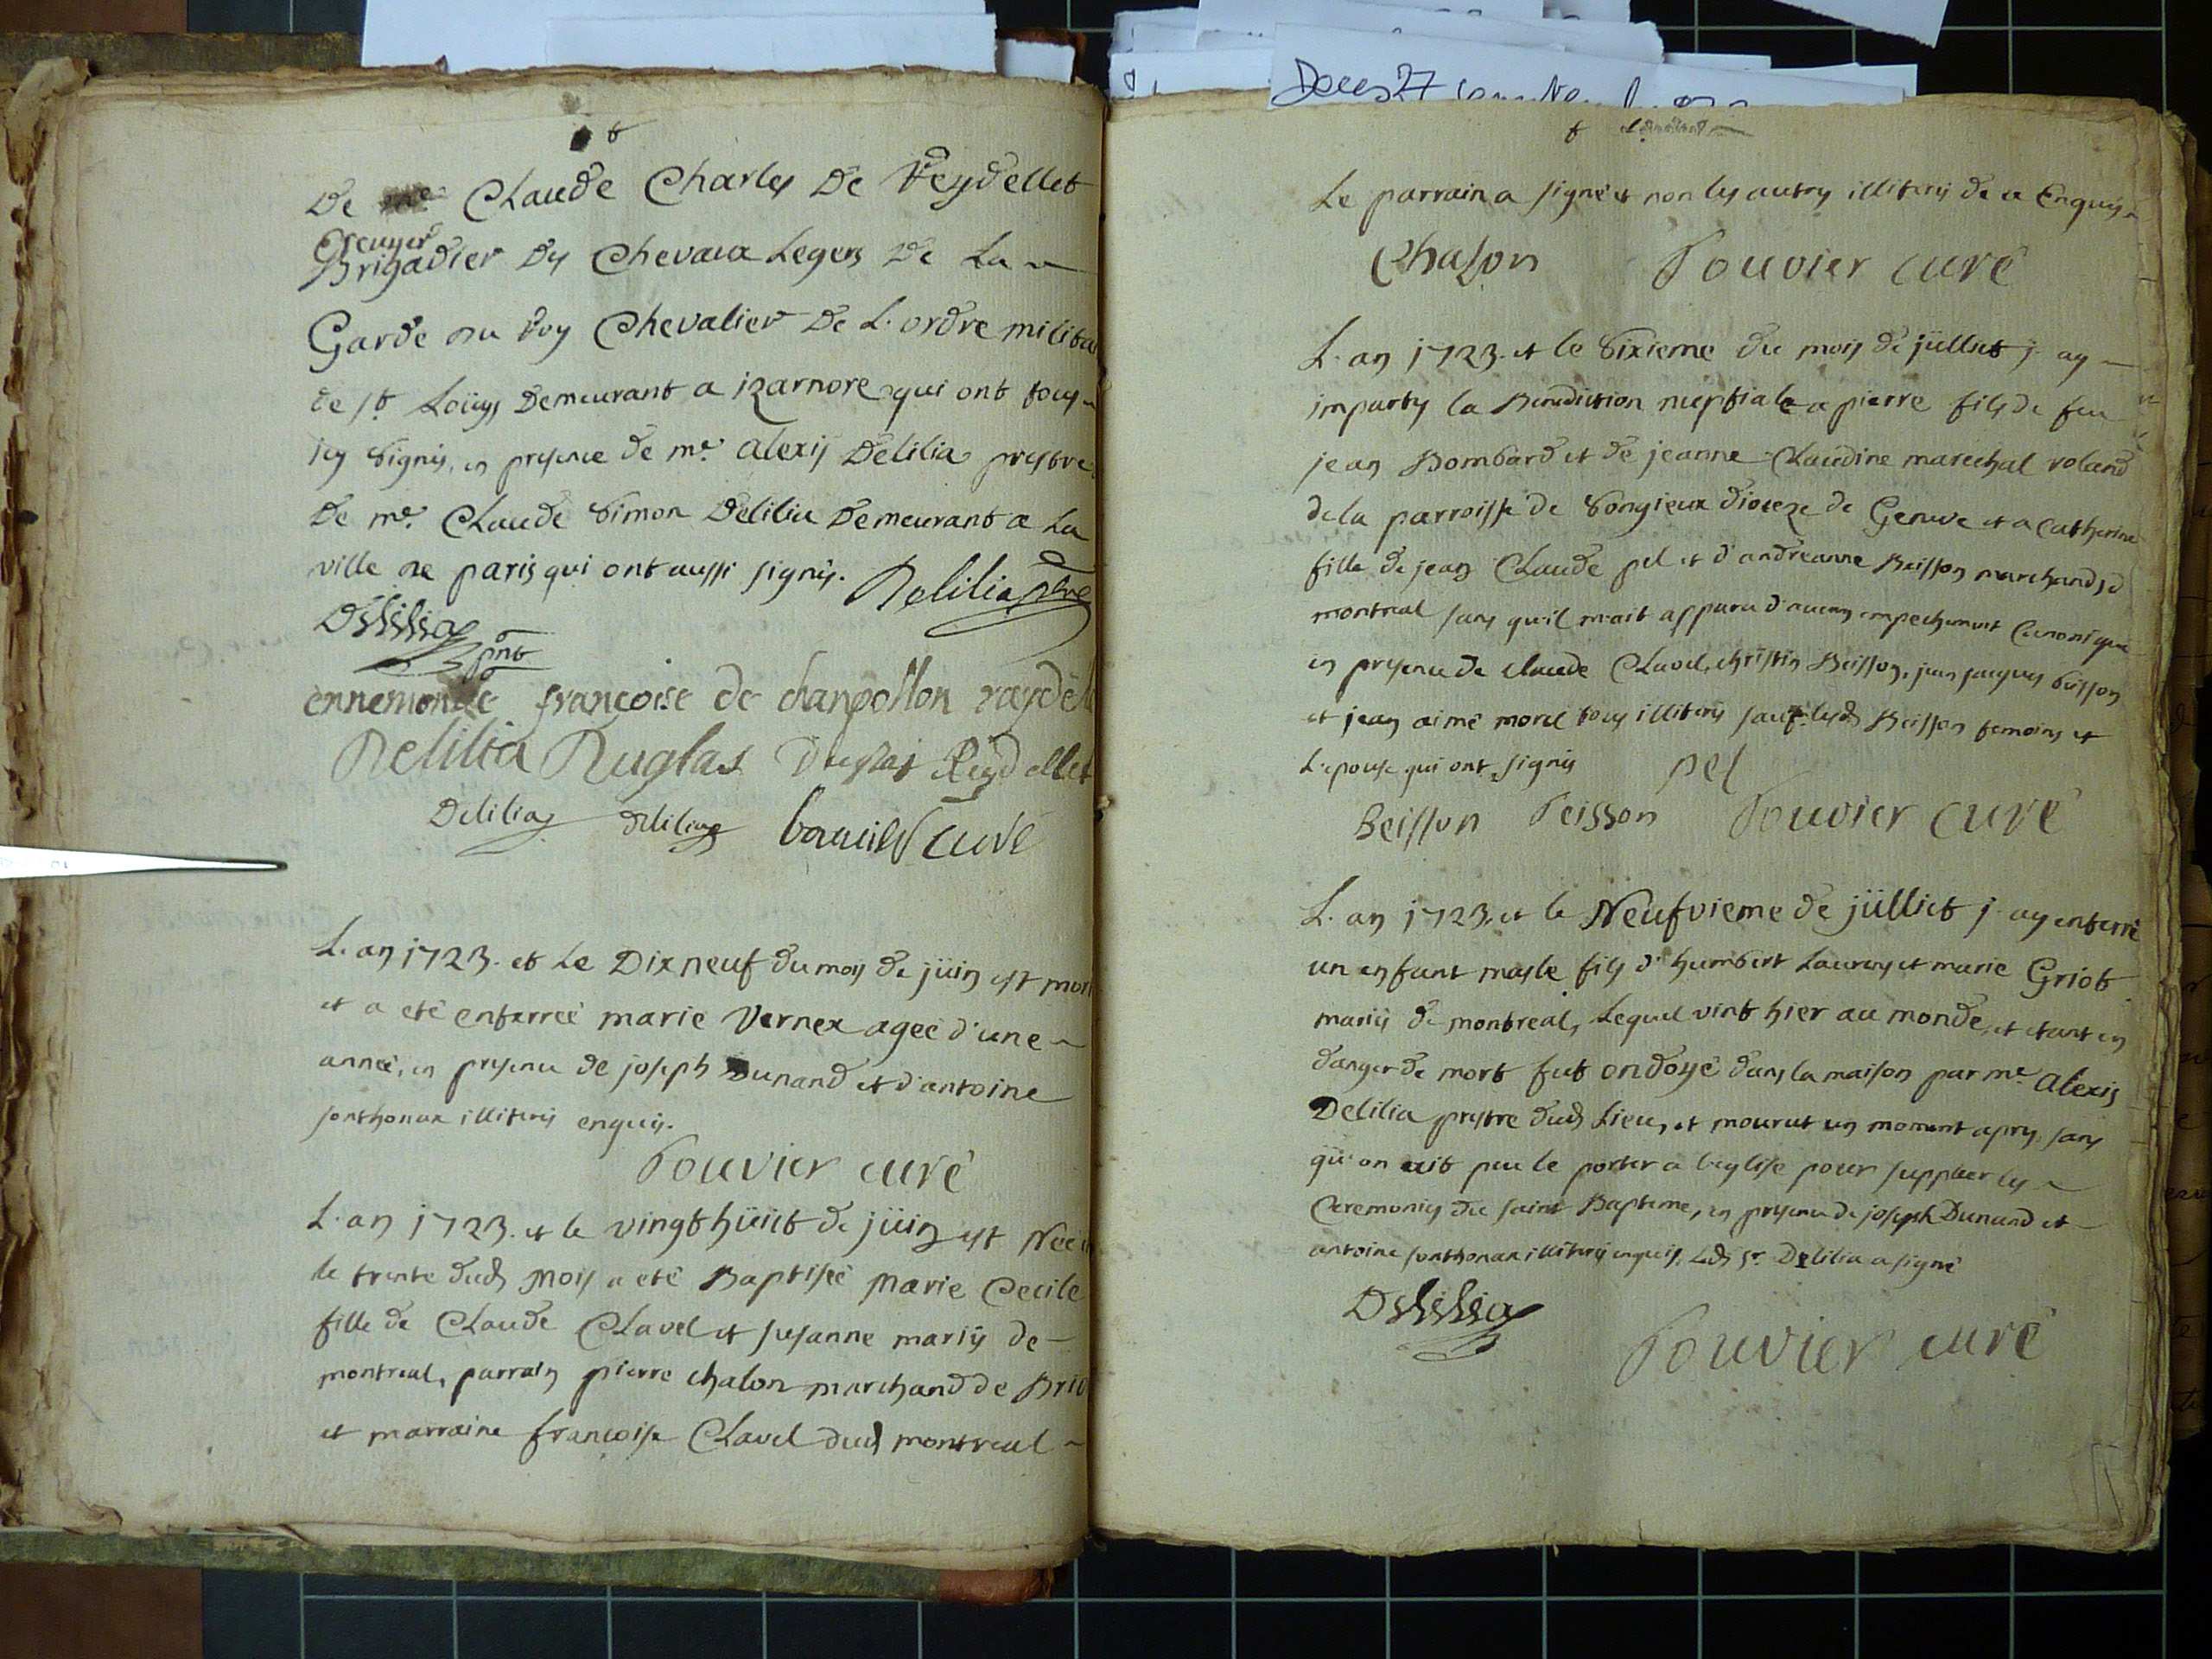 De Claude Charles De Reydellet
Escuyer
Brigadier Des Chevaux Legers De La
Garde du Roy Chevalier De L'ordre milita
de st Loüys Demeurant a izarnore qui ont tous
icy signés, en presence de me. alexis Delilia prestre
De me. Claude Simon Delilia Demeurant a La
ville de paris qui ont aussi signés. Delilia ptre
Delilia
pnt
ennemonde françoise de chanpollon raydel
Delilia Duglas Duglas Reydellet
Delilia delilia bouvier curé
L'an 1723. et Le Dixneuf du mois de jüin est mor
et a eté enterreé marie Vernex ageé d'une
anneé, en presence de joseph Dunand et d'antoine
sonthonax illiterés enquis.
Bouvier curé
L'an 1723. et le vingt hüict de jüin est Neé
le trente dud mois a eté Baptiseé Marie Cecile
fille de Claude Clavel et susanne mariés de
montreal, parrain pierre chalon marchand de Bri
et marraine francoise Clavel dud montreal
Deces 27
Le parrain a signé et non les autres illiterés de ce Enquis
Chalon Bouvier curé
L'an 1723. et le sixieme du mois de jüilliet j'ay
imparty la Benediction nuptiale a pierre fils de feu
jean Bombard et de jeanne Claudine marechal roland
de la parroisse de Songieux dioceze de Geneve et a Catherine
fille de jean Claude pel et d'andreanne Beisson marchands d
montreal sans qu'il m'ait apparu d'aucun empechement Canonique
en presence de claude Clavel, christin Beisson, jean jacques Beisson
et jean aimé morel tous illiterés sauf lesd Beisson temoins et
L'epouse qui ont signés pel
Beisson Beisson Bouvier curé
L'an 1723. et le Neufvieme de jüilliet j'ay enterré
un enfant masle fils d'humbert Laurens et marie Griot
mariés de montreal, Lequel vint hier au monde, et etant en
danger de mort fut ondoyé dans la maison par me. alexis
Delilia prestre dud Lieu, et mourut un moment apres, sans
qu'on ait peu le porter a l'eglise pour suppleer les
Ceremonies du saint Bapteme, en presence de joseph Dunand et
antoine sonthonax illiterés enquis, Led sr. Delilia a signé
Delilia
Bouvier curé